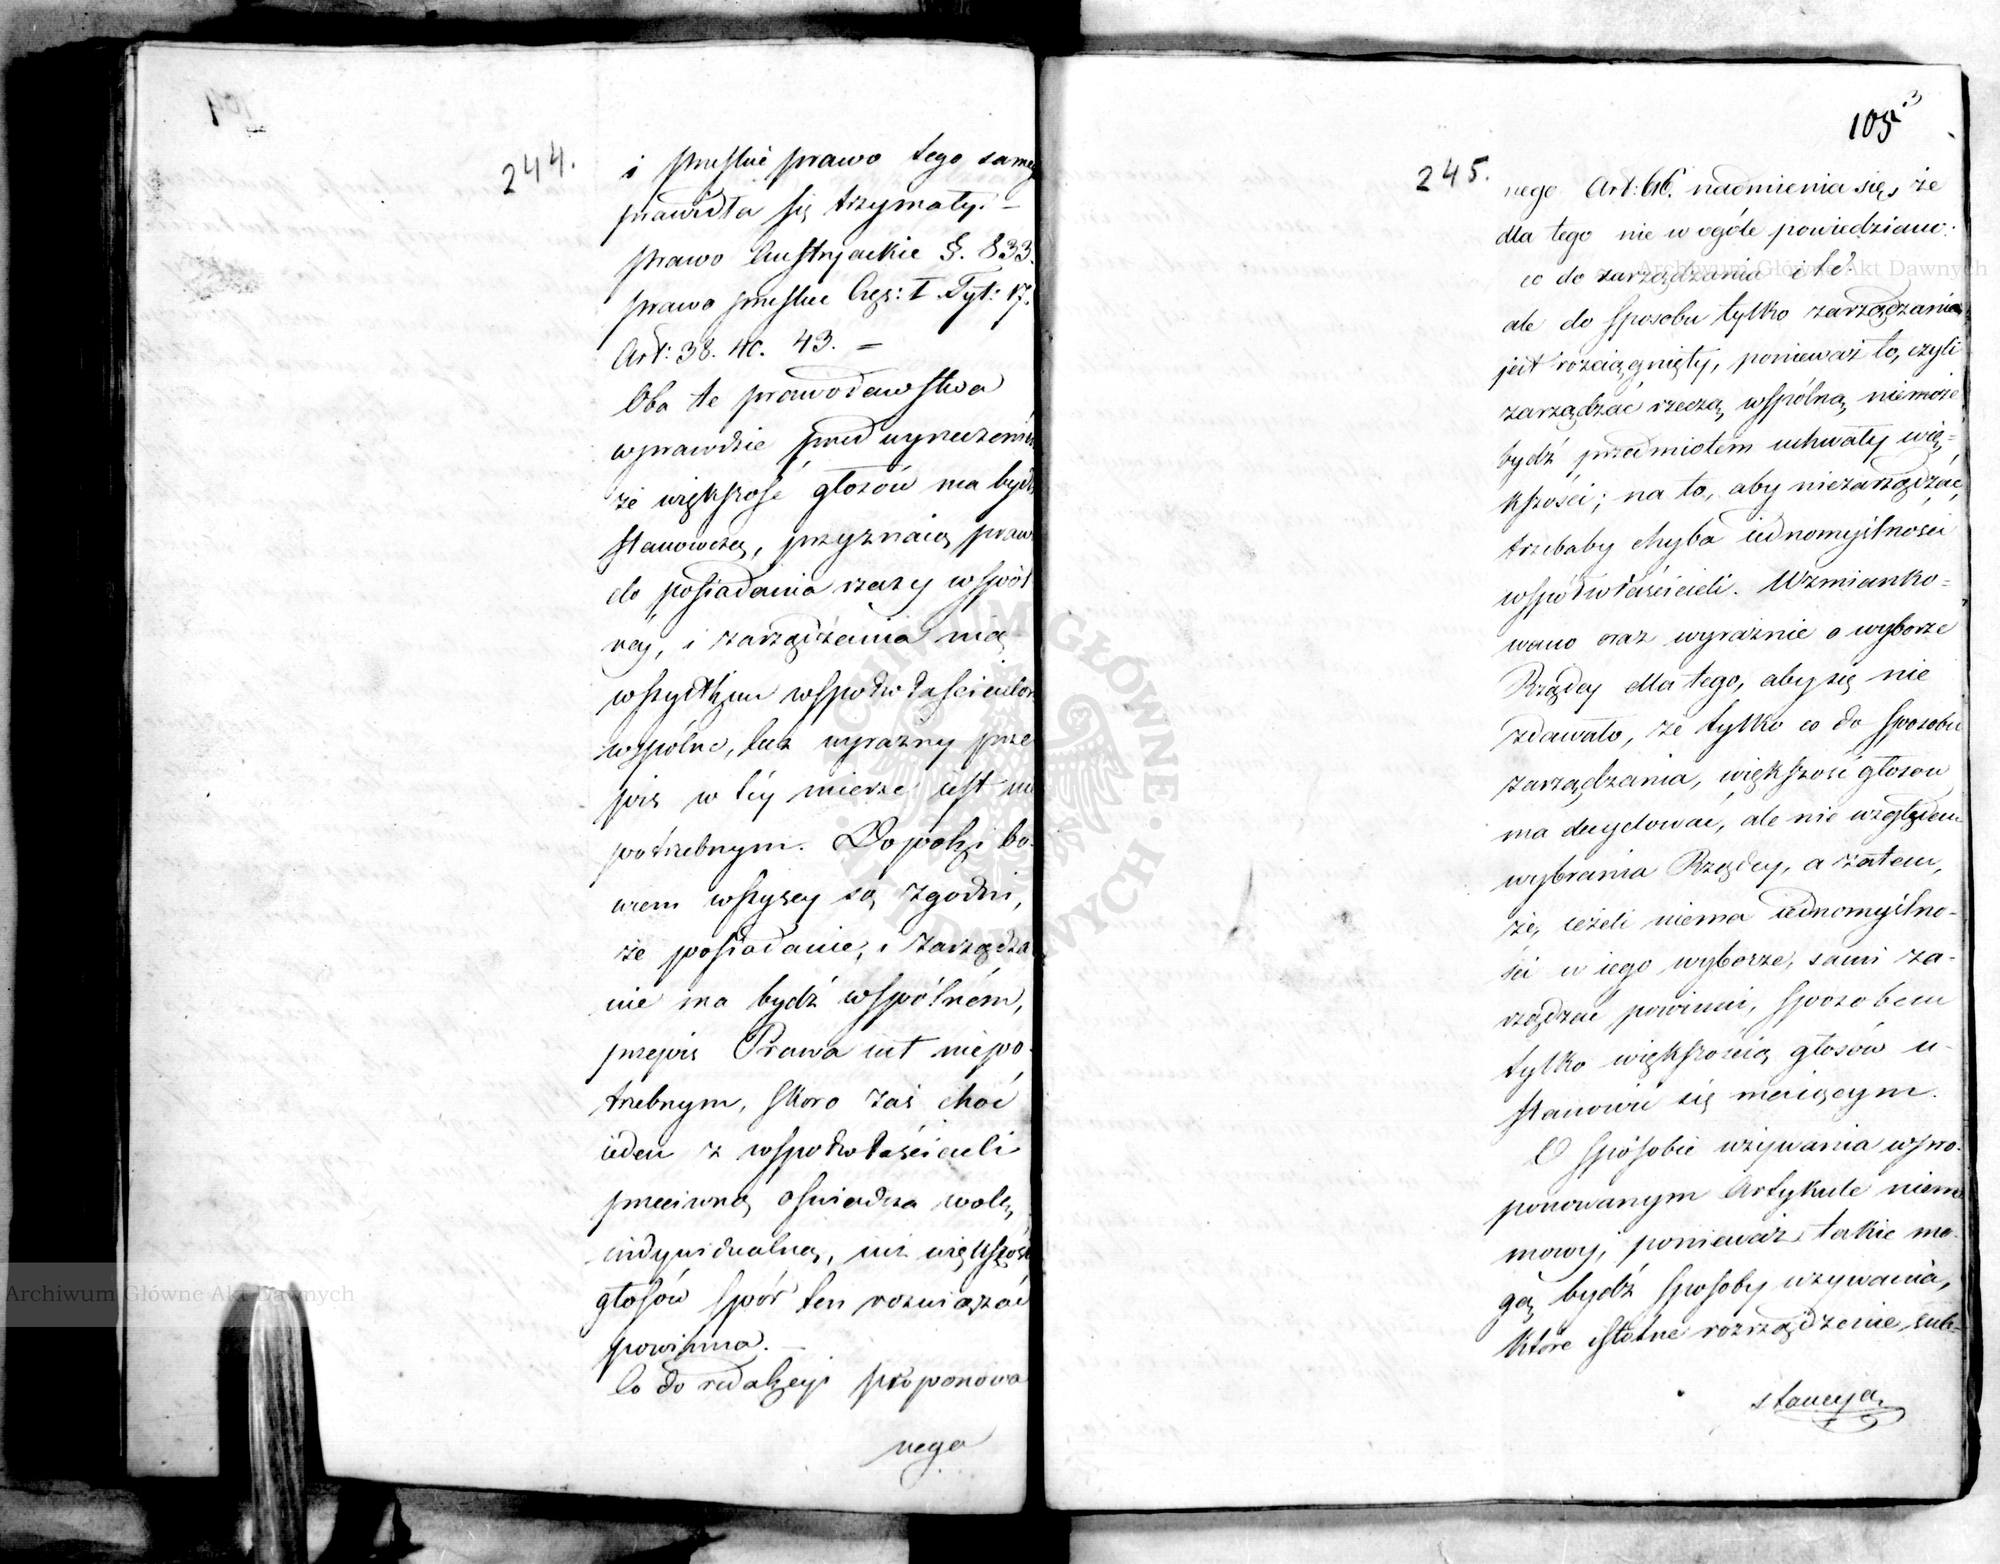 244.
i pruskie prawo tego samego
prawidła się trzymały. –
prawo Austryackie §. 833.
prawo pruskie Częś: I. Tyt: 17.
Art: 38. 40. 43. –
Oba te prawodawstwa
wprawdzie przed wyrzeczeniem
że większość głosów ma bydź
stanowczą, przyznaią prawo
do posiadania rzeczy wspól
néy, i zarządzania nią
wszystkim współwłaścicielom
wspólne, lecz wyraźny prze
pis w téy mierze iest nie
potrzebnym. Dopokąi bo-
wiem wszyscy są zgodni,
że posiadanie, i zarządza
nie ma bydź wspólném,
przepis Prawa iest niepo-
trzebnym, skoro zaś choć
ieden z współwłaścicieli
przeciwną oświadcza wolę
indywidualną, iuż większość
głosów spór ten rozwiązać
powinna. –
Co do redakcyi proponowa
nego
105
245.
nego Art: 66. nadmienia się, że
dla tego nie w ogóle powiedziano:
co do zarządzania i t. d.
ale do sposobu tylko zarządzania
jest rozciągnięty, ponieważ to, czyli
zarządzać rzeczą wspólną niemoże
bydź przedmiotem uchwały wię-
kszości; na to, aby niezarządzać,
trzebaby chyba iednomyślności
współwłaścicieli. Wzmianko-
wano oraz wyraźnie o wyborze
Rządcy dla tego, aby się nie
zdawało, że tylko co do sposobu
zarządzania, większość głosów
ma decydować, ale nie względem
wybrania Rządcy, a zatem,
że, ieżeli niema iednomyślno-
ści w iego wyborze, sami za-
rządzać powinni, sposobem
tylko większością głosów u-
stanowić się maiącym.
O sposobie używania w pro-
ponowanym Artykule niema
mowy, ponieważ takie mo-
gą bydź sposoby używania,
które istotne rozrządzenie sub-
stancyą
Archiwum Główne Akt Dawnych
Archiwum Główne Akt Dawnych
ARCHIWUM GŁÓWNE AKT DAWNYCH